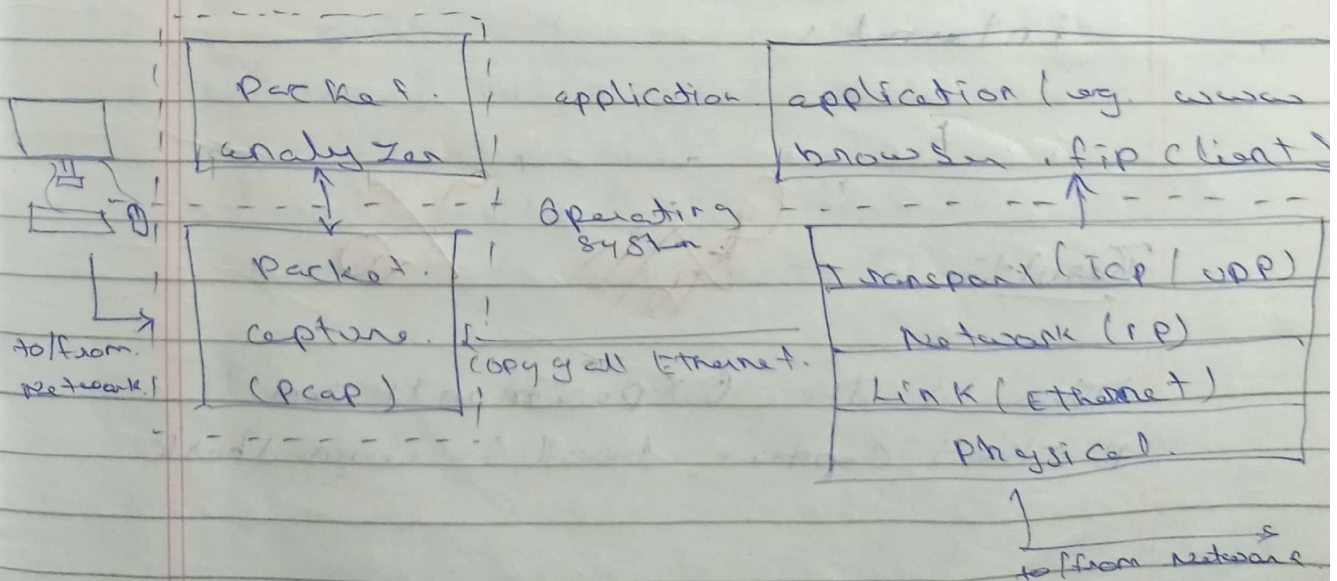 Packet.
analyzer
application
application (eg. www
browser, ftp client)
Operating
system.
Packet.
capture.
(pcap)
copy of all Ethernet.
Transport (TCP / UDP)
Network (IP)
Link (Ethernet)
physical.
to/from.
Network
to/from Network